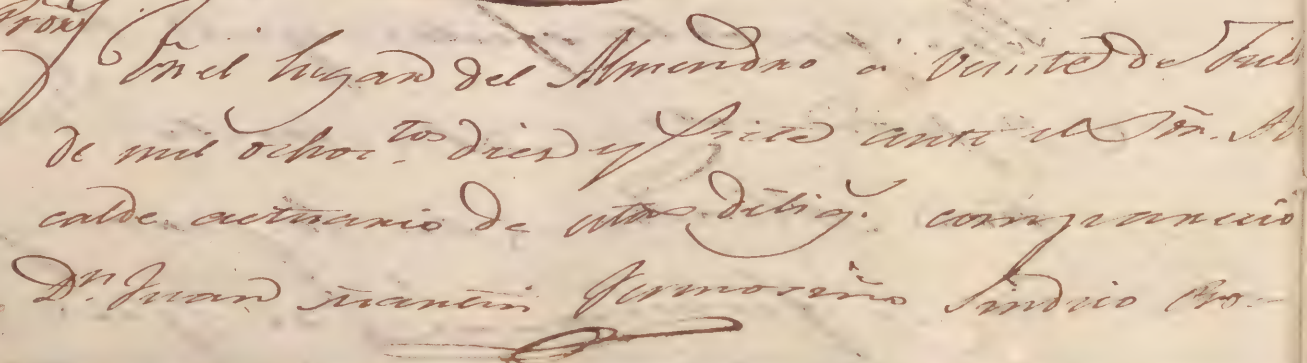 En el lugar del Almendro a veinte de Juli
de mil ochoc.tos diez y siete ante el Sôr. Al
calde actuario de estas dilig.s comparecio
Dn. Juan Martin Hermoseño Sindico Pro-